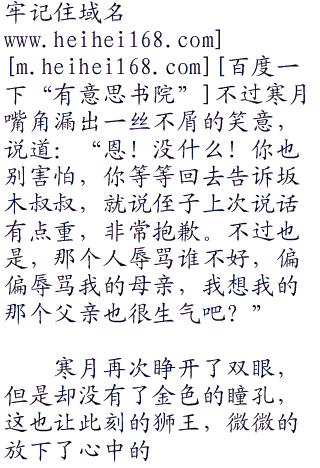 牢记住域名
www.heihei168.com]
[m.heihei168.com][百度一
下“有意思书院”]不过寒月
嘴角漏出一丝不屑的笑意，
说道：“恩！没什么！你也
别害怕，你等等回去告诉坂
木叔叔，就说侄子上次说话
有点重，非常抱歉。不过也
是，那个人辱骂谁不好，偏
偏辱骂我的母亲，我想我的
那个父亲也很生气吧？”
寒月再次睁开了双眼，
但是却没有了金色的瞳孔，
这也让此刻的狮王，微微的
放下了心中的